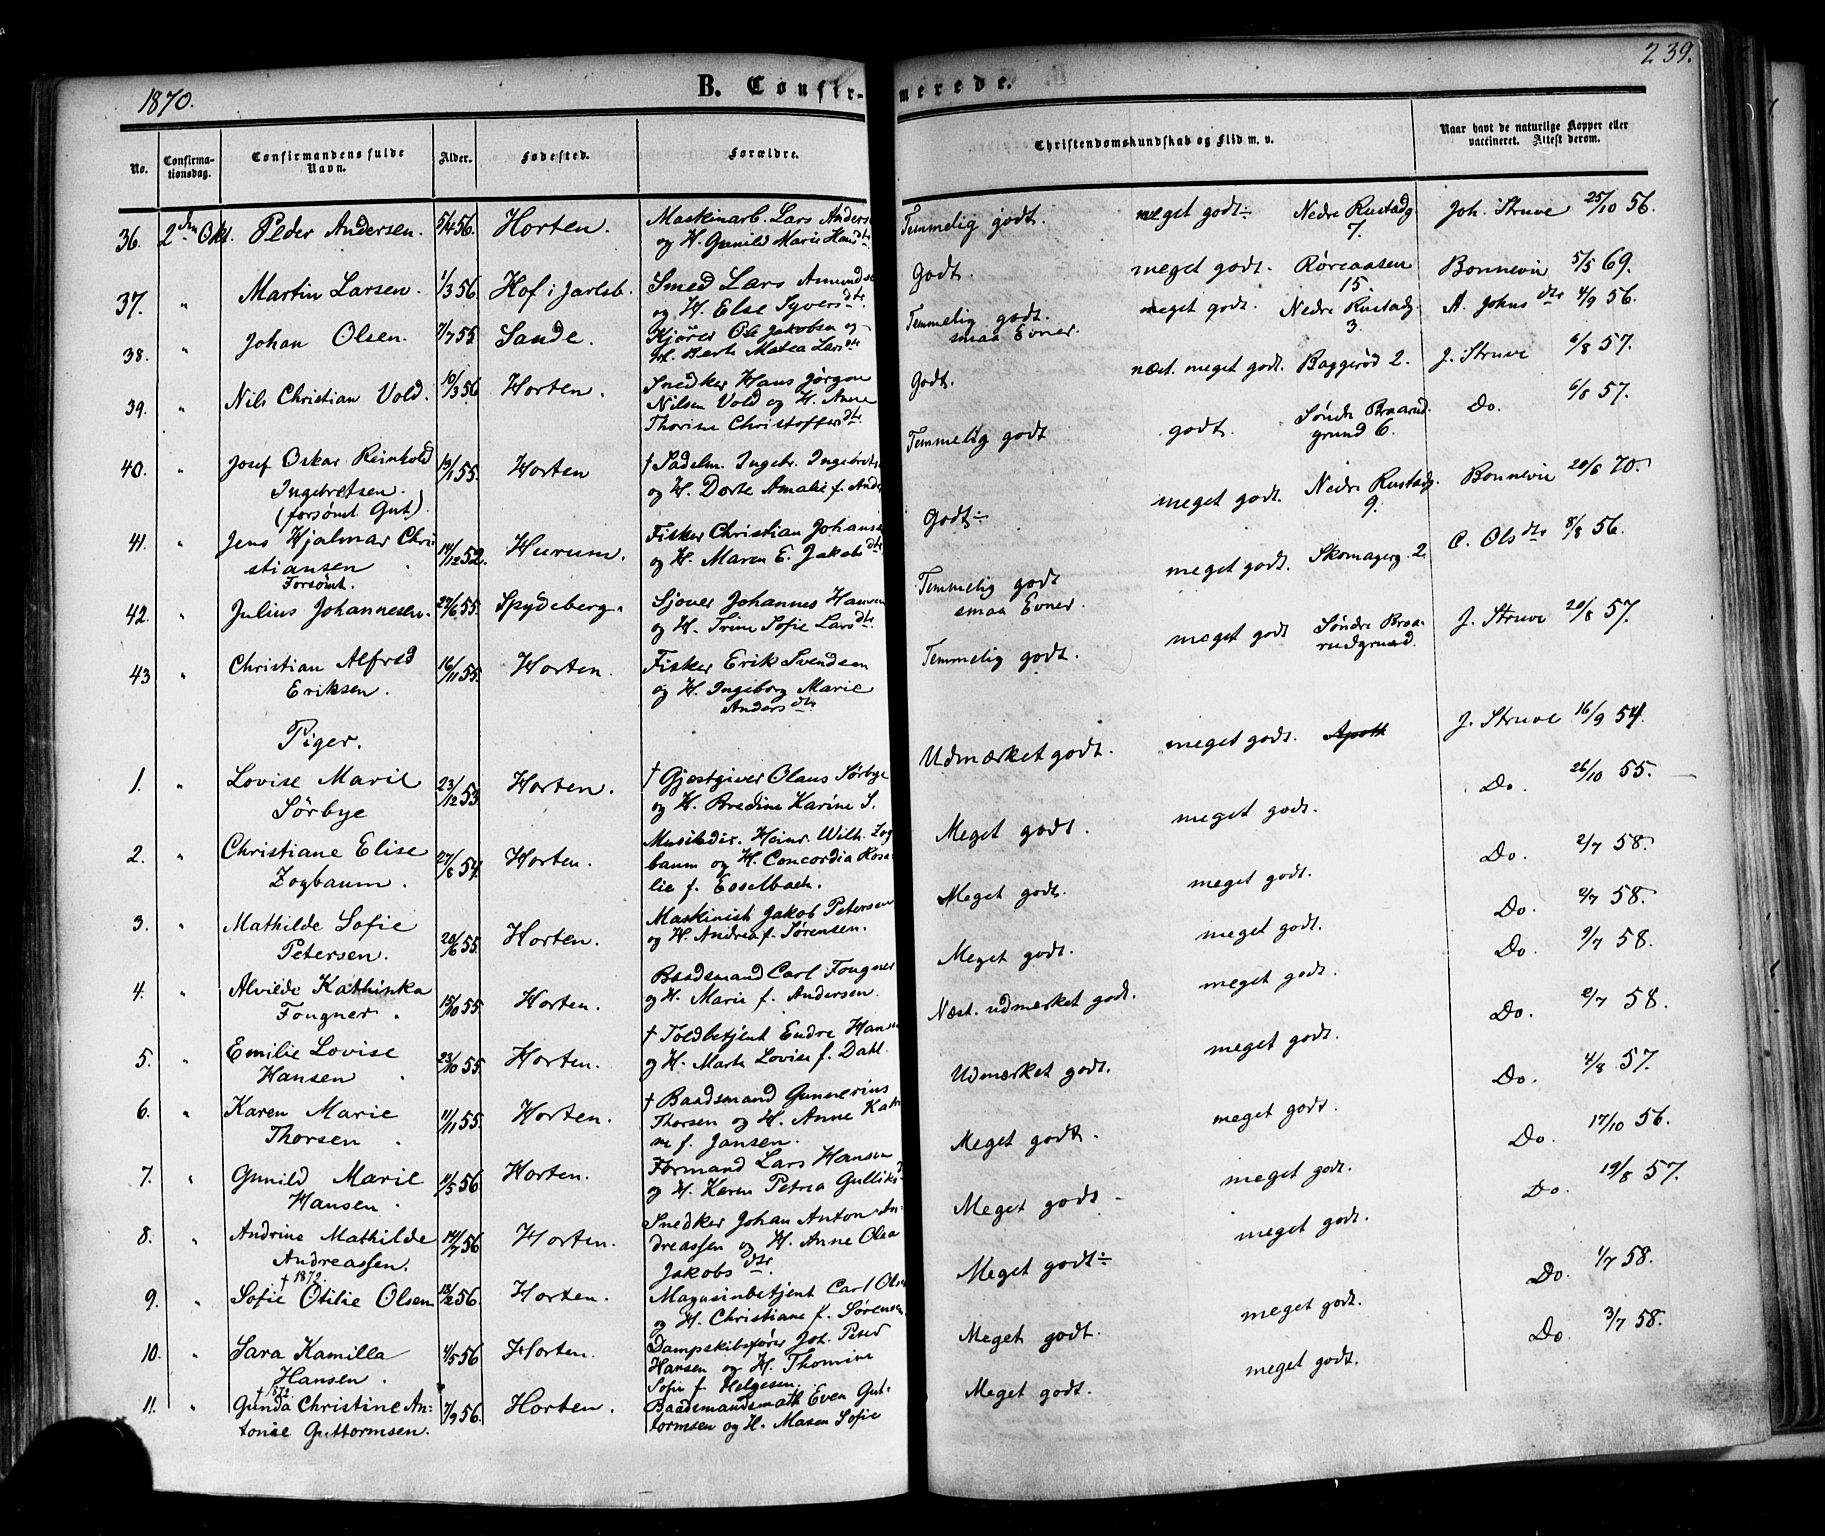 1870.
B. Confir- merede.
239.
No. Confirma- Confirmandens fulde Alder. Fødested. Forældre. Christendomskundskab og Flid m. v. Naar havt de naturlige Kopper eller
tionsdag. Navn. vaccineret. Attest derom.
36. 2den Okt. Peder Andersen. 5/4 56. Horten. Maskinarb. Lars Anders Temmelig godt. meget godt÷ Nedre Rustadg. Joh. Struve 25/10 56.
og H. Gunild Marie Hansdtr 7.
37. " Martin Larsen. 1/3 56. Hof i Jarlsb. Smed Lars Amunds Godt. meget godt. Røreaasen Bonnevie 5/5 69.
og H. Else Syversdtr 15.
38. " Johan Olsen. 7/7 55 Sande. Kjører Ole Jakobsen og Temmelig godt. meget godt. Nedre Rustadg. A. Johnsdtr 4/9 56.
H. Berte Matea Larsdtr smaa Evner. 3.
39. " Nils Christian Vold. 10/3 56 Horten. Snedker Hans Jørgen Godt. næst. meget godt. Baggerød 2. J. Struve 6/8 57.
Nilsen Vold og H. Anne
Thorine Christoffersdtr
40. " Josef Oskar Reinhold 13/1 55. Horten † Sadelm. Ingebr. Ingebrets Temmelig godt godt. Søndre Braarud- Do. 6/8 57.
Ingebretsen. og H. Dorte Amalie f. Ande grund 6.
(forsømt Gut)
41. " Jens Hjalmar Chri- 14/12 52. Hurum. Fisker Christian Johans Godt÷ meget godt. Nedre Rustadg. Bonnevie 20/6 70.
stiansen og H. Maren E. Jakobsdtr 9.
Forsømt.
42. " Julius Johannesen. 22/6 55. Spydeberg. Sjouer Johannes Hansen Temmelig godt meget godt. Skomagerg. 2. C. Olsdtr 8/8 56.
og H. Trine Sofie Larsdtr. smaa Evner.
43 " Christian Alfred 16/11 55. Horten. Fisker Erik Svendsen Temmelig godt. meget godt Søndre Braa- J. Struve 20/8 57.
Eriksen. og H. Ingeborg Marie rudgrund.
Andersdtr
Piger.
1. " Lovise Marie 23/12 53. Horten. † Gjæstgiver Olaus Sørbye Udmærket godt. meget godt. J. Struve 16/9 54.
Sørbye og H. Bredine Karine S.
2. " Christiane Elise 27/8 54. Horten. Musikdir. Heinr. Wilh. Zog Meget godt. meget godt. Do. 26/10 55.
Zogbaum. baum og H. Concordia Rosa-
lie f. Esselbach.
3. " Mathilde Sofie 20/6 55. Horten. Maskinist Jakob Petersen Meget godt. meget godt. Do. 2/7 58.
Petersen. og H. Andrea f. Sørensen.
4. " Alvilde Kathinka 15/10 55. Horten. Baadsmand Carl Fougner Meget godt. meget godt. Do. 2/7 58.
Fougner. og H. Marie f. Andersen.
5. " Emilie Lovise 23/10 55. Horten. † Toldbetjent Endre Hans Næst. udmærket godt. meget godt. Do. 9/7 58.
Hansen og H. Marte Lovise f. Dahl.
6. " Karen Marie 11/11 55. Horten. † Baadsmand Gunnerius Udmærket godt. meget godt. Do. 2/7 58.
Thorsen Thorsen og H. Anne Kat
ne f. Jansen.
7. " Gunild Marie 11/5 56. Horten. Formand Lars Hansen Meget godt. meget godt. Do. 4/8 57.
Hansen. og H. Karen Petrea Gulliks
8. " Andrine Mathilde 14/7 56 Horten. Snedker Johan Anton An- Meget godt meget godt. Do. 17/10 56.
Andreassen. dreassen og H. Anne Olea
Jakobsdtr.
† 1872.
9. " Sofie Otilie Olsen 13/2 56. Horten. Magasinbetjent Carl Ols Meget godt÷ meget godt. Do. 19/8 57.
og H. Christiane f. Sørensen
10. " Sara Kamilla 4/5 56 Horten. Dampskibsfører Joh. Peter Meget godt. meget godt. Do. 1/7 58.
Hansen. Hansen og H. Thomine
Sofie f. Helgesen.
11. " Gunda Christine An- 7/9 56. Horten. Baadsmandsmath Even Gut- Meget godt. meget godt. Do. 3/7 58.
tonie Guttormsen. tormsen og H. Maren Sofie